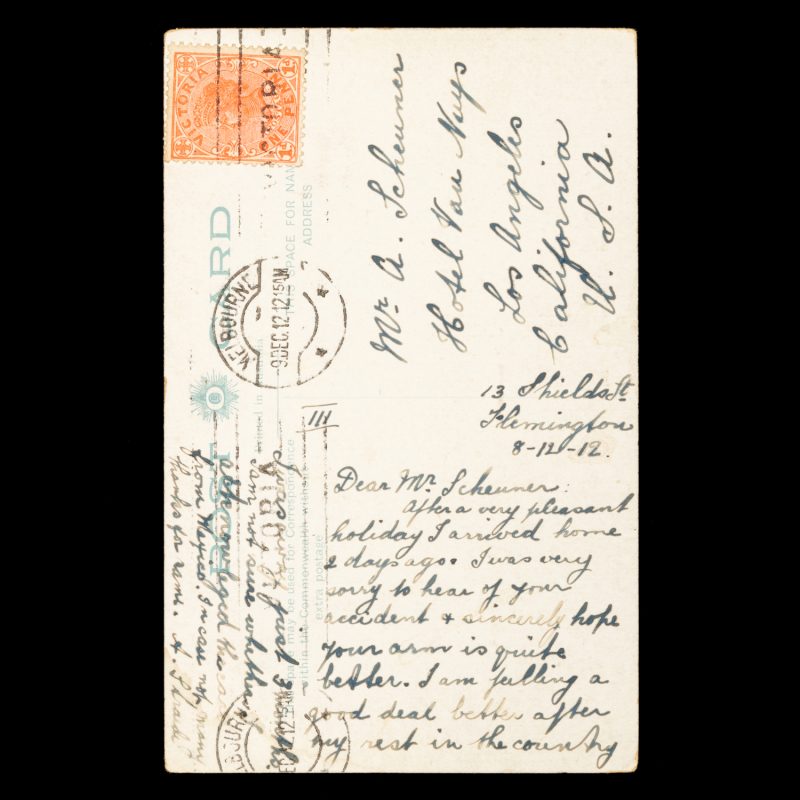 VICTORIA
ONE PENNY
VICTORIA
POST CARD
THIS SPACE FOR NAME
ADDRESS
MELBOURNE
9 DEC 12 12 15 AM
Mr. A. Scheuner
Hotel Van Nuys
Los Angeles
California
U. S. A.
III
13 Shields St
Flemington
8-12-12.
Dear Mr. Scheuner:
After a very pleasant
holiday I arrived home
2 days ago. I was very
sorry to hear of your
accident & sincerely hope
your arm is quite
better. I am feeling a
good deal better after
my rest in the country
I was away just 3
am not sure whether I
acknowledged the card
from Mexico. In case not, many
thanks for same. A.
may be used for Correspondence
within the Commonwealth without
extra postage
Printed in